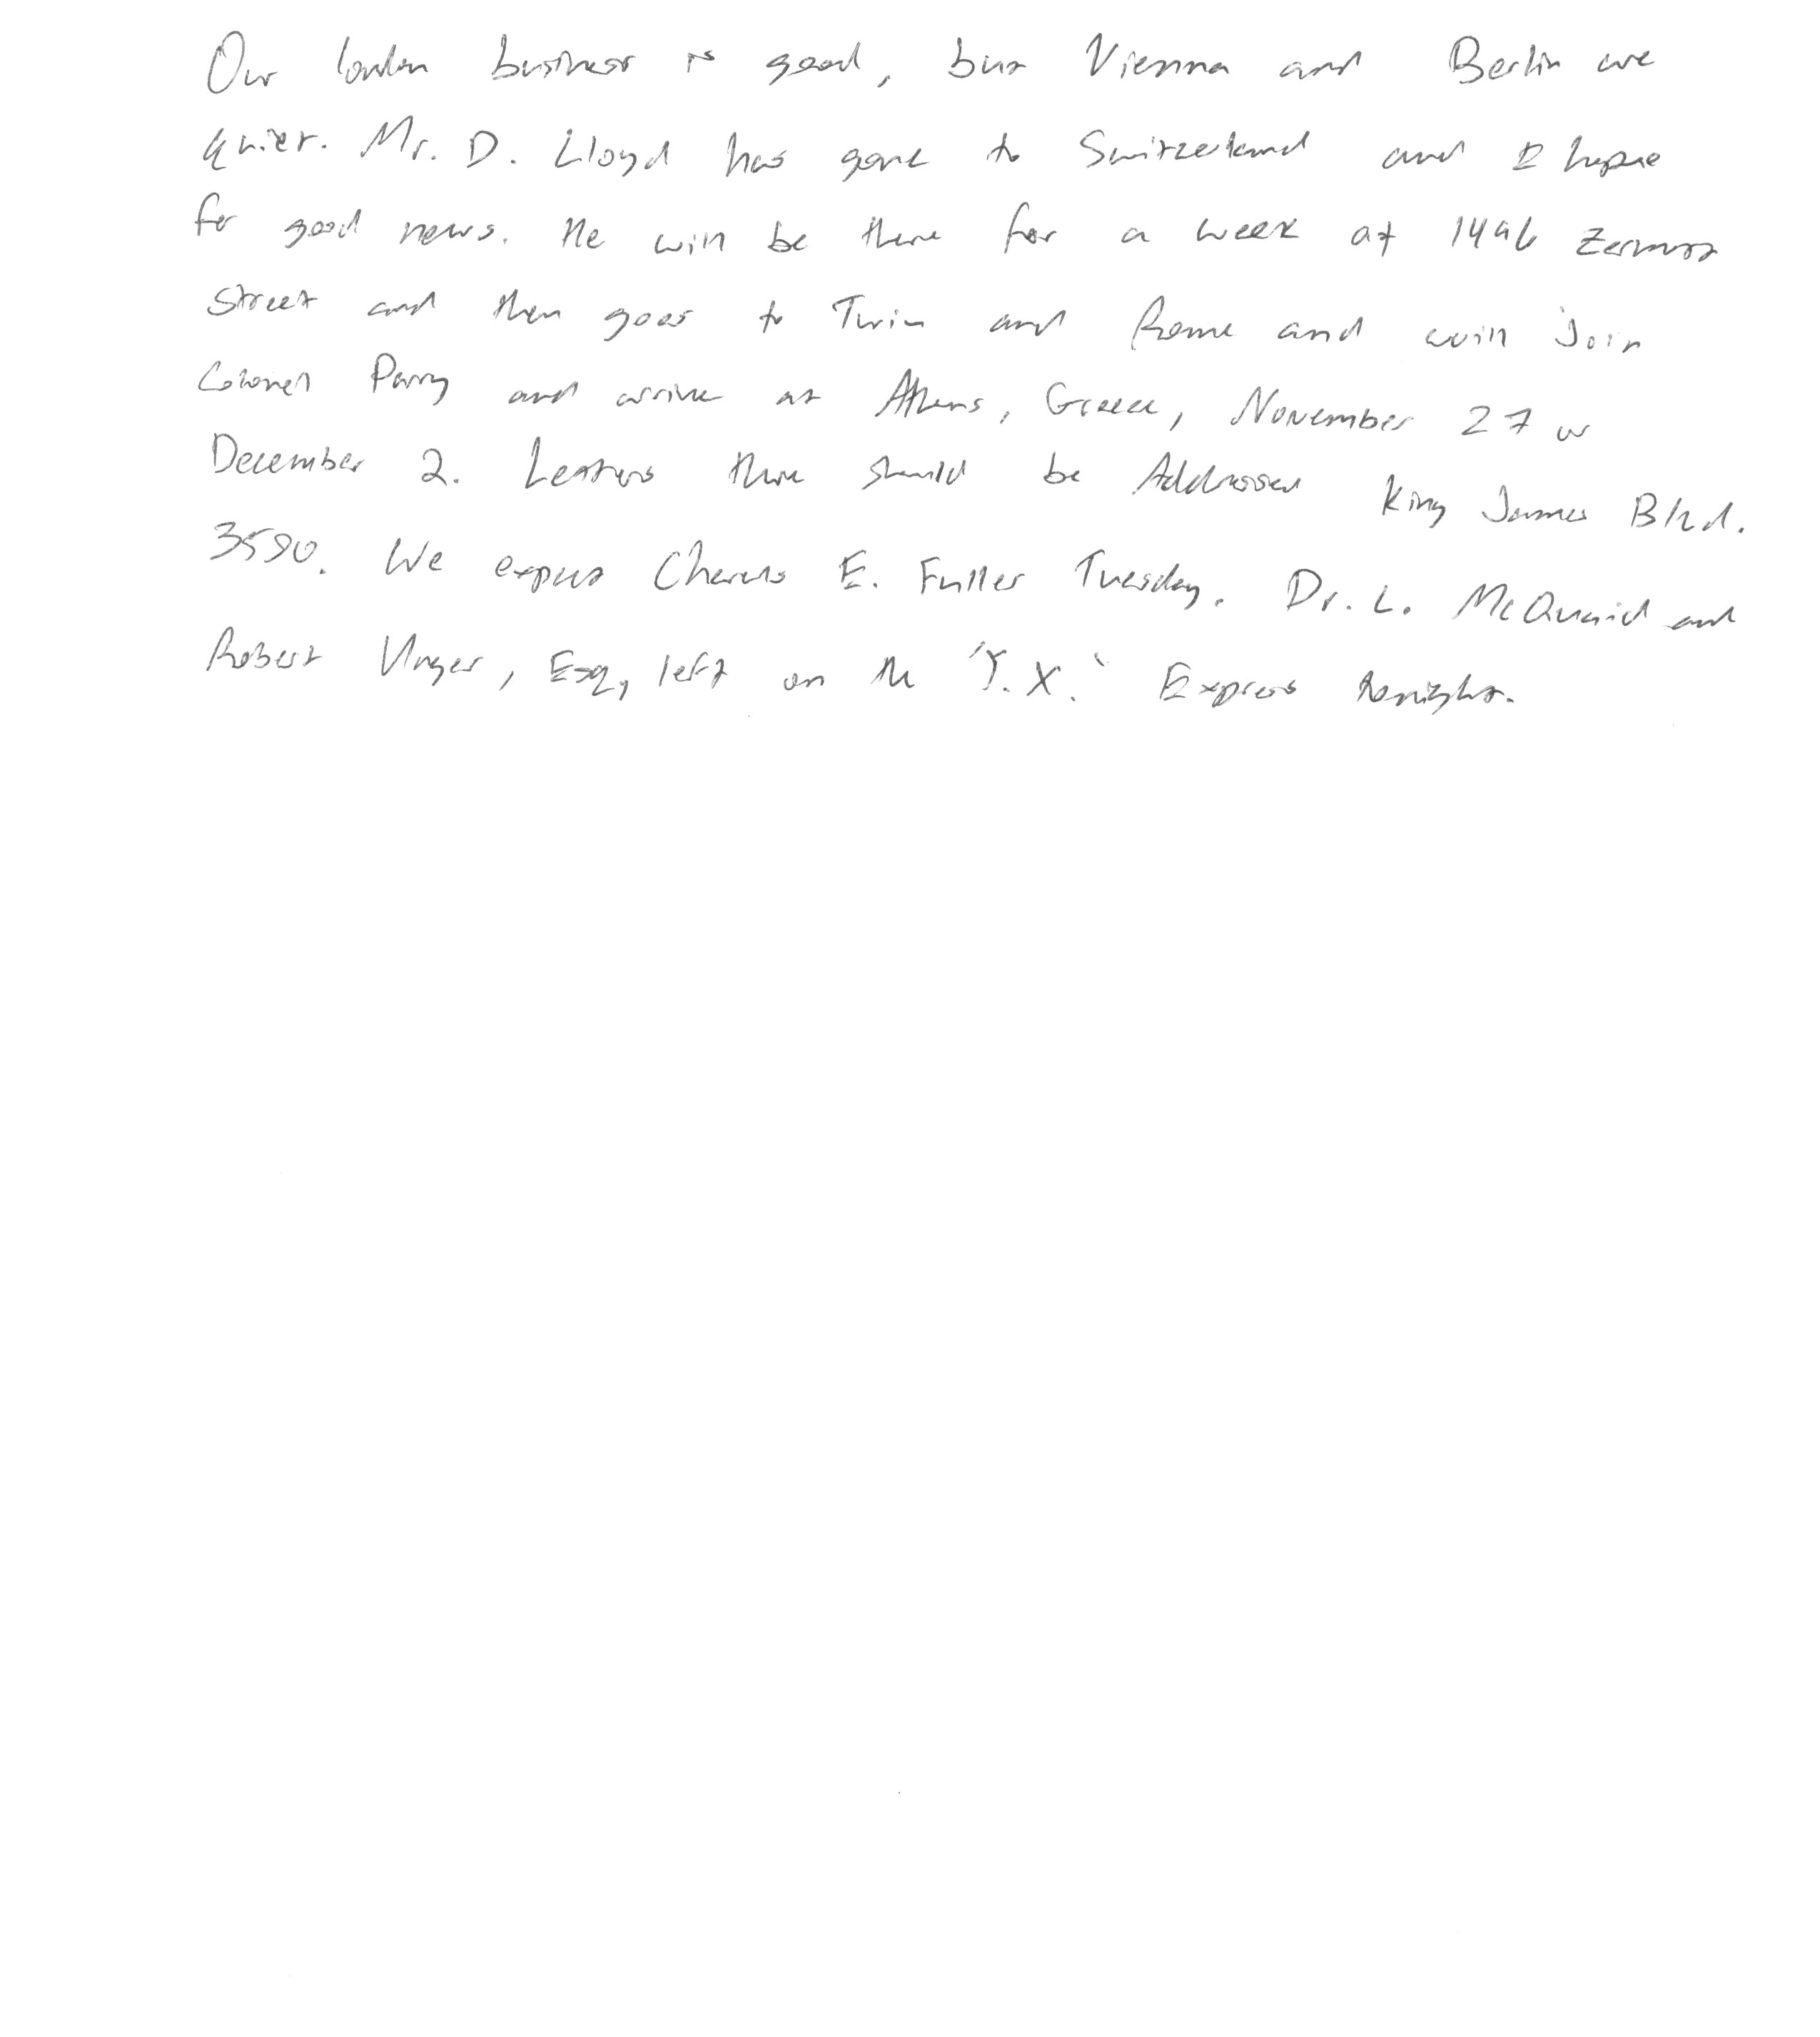 Our london business is good, but Vienna and Berlin are
quiet. Mr. D. Lloyd has gone to Switzerland and I hope
for good news. He will be there for a week at 1496 Zermott
Street and then goes to Turin and Rome and will Join
Colonel Parry and arrive at Athens, Greece, November 27 or
December 2. Letters there should be Addressed King James Blvd.
3580. We expect Charles E. Fuller Tuesday. Dr. L. McQuaid and
Robert Unger, Esq, left on the 'Y.X.' Express tonight.